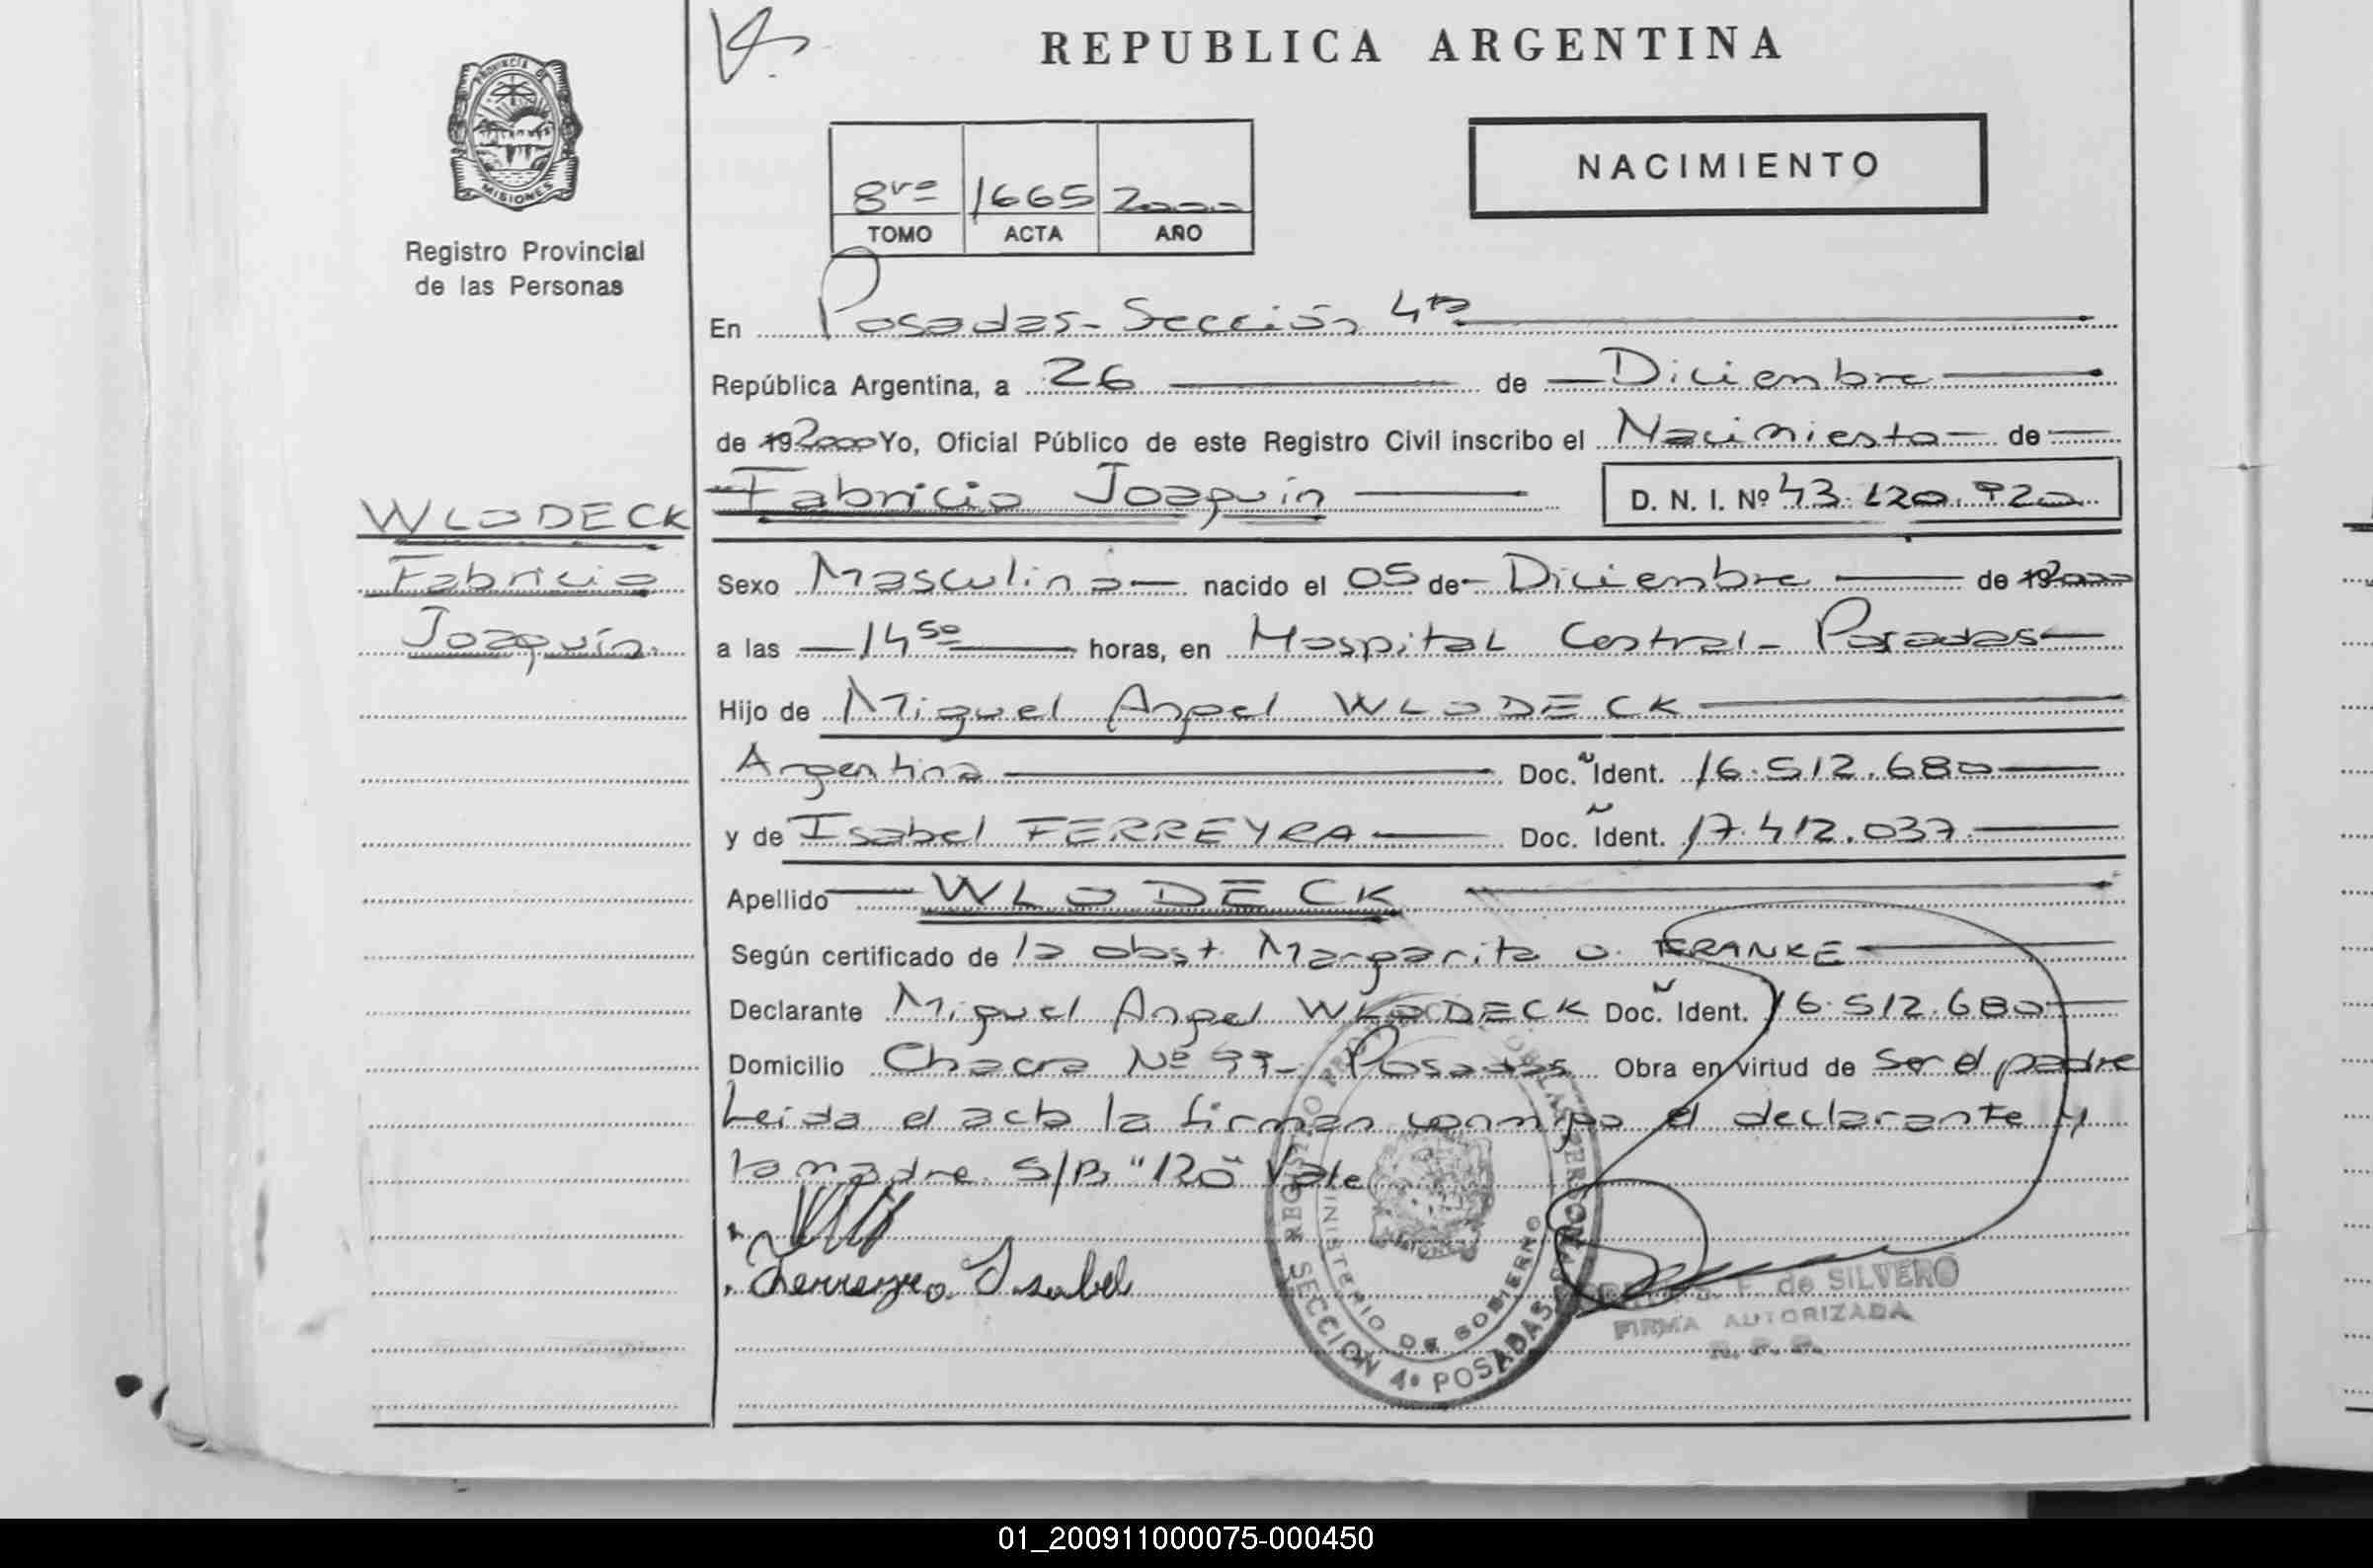 REPUBLICA ARGENTINA
PROVINCIA DE
MISIONES
Registro Provincial
de las Personas
8vo 1665 2000
TOMO ACTA AÑO
NACIMIENTO
En Posadas - Sección 4ta
República Argentina, a 26 de Diciembre
de 19 2000 Yo, Oficial Público de este Registro Civil inscribo el Nacimiento de
Fabricio Joaquín D. N. I. Nº 43.120.920
WLODECK
Fabricio
Joaquín.
Sexo Masculino nacido el 05 de Diciembre de 19 2000
a las 14 50 horas, en Hospital Central - Posadas
Hijo de Miguel Angel WLODECK
Argentina Doc. Ident. 16.512.680
y de Isabel FERREYRA Doc. Ident. 17.412.037.
Apellido WLODECK
Según certificado de la obst. Margarita O. FRANKE
Declarante Miguel Angel WLODECK Doc. Ident. 16.512.680
Domicilio Chacra Nº 99 - Posadas Obra en virtud de ser el padre
Leida el acta la firman conmigo el declarante y
la madre. S/B "120" Vale
Ferreyra Isabel
REGISTRO DE LAS PERSONAS
MINISTERIO DE GOBIERNO
SECCION 4ª POSADAS
S. F. de SILVERO
FIRMA AUTORIZADA
R. P. P.
01_200911000075-000450